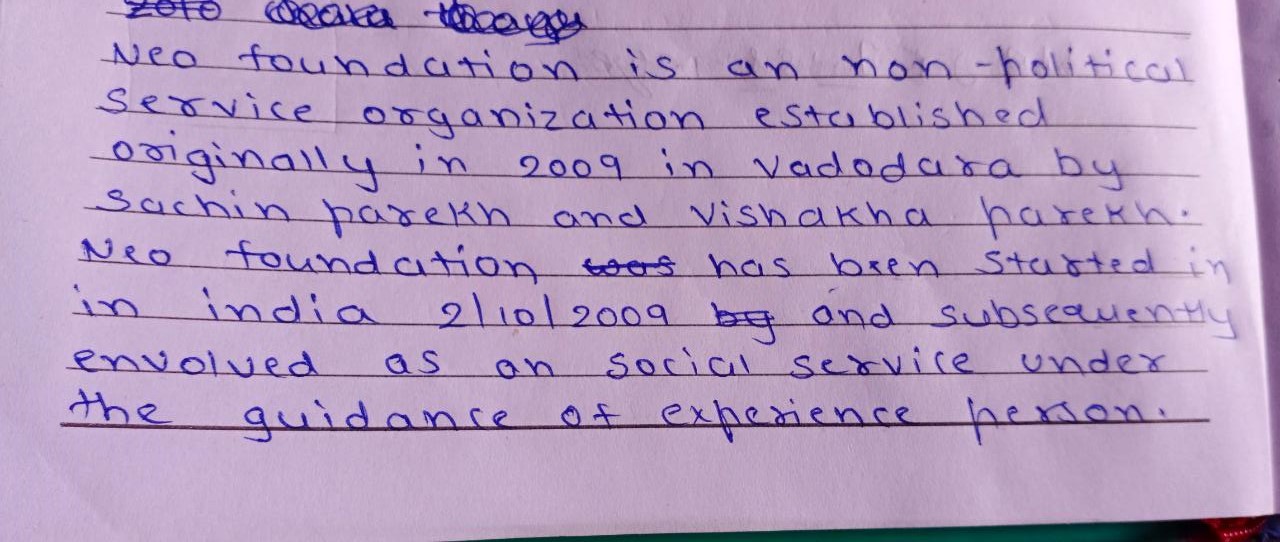 Neo foundation is an non-political
service organization established
originally in 2009 in vadodara by
sachin parekh and vishakha parekh.
Neo foundation has been started in
in india 2/10/2009 and subsequently
envolved as an social service under
the guidance of experience person.